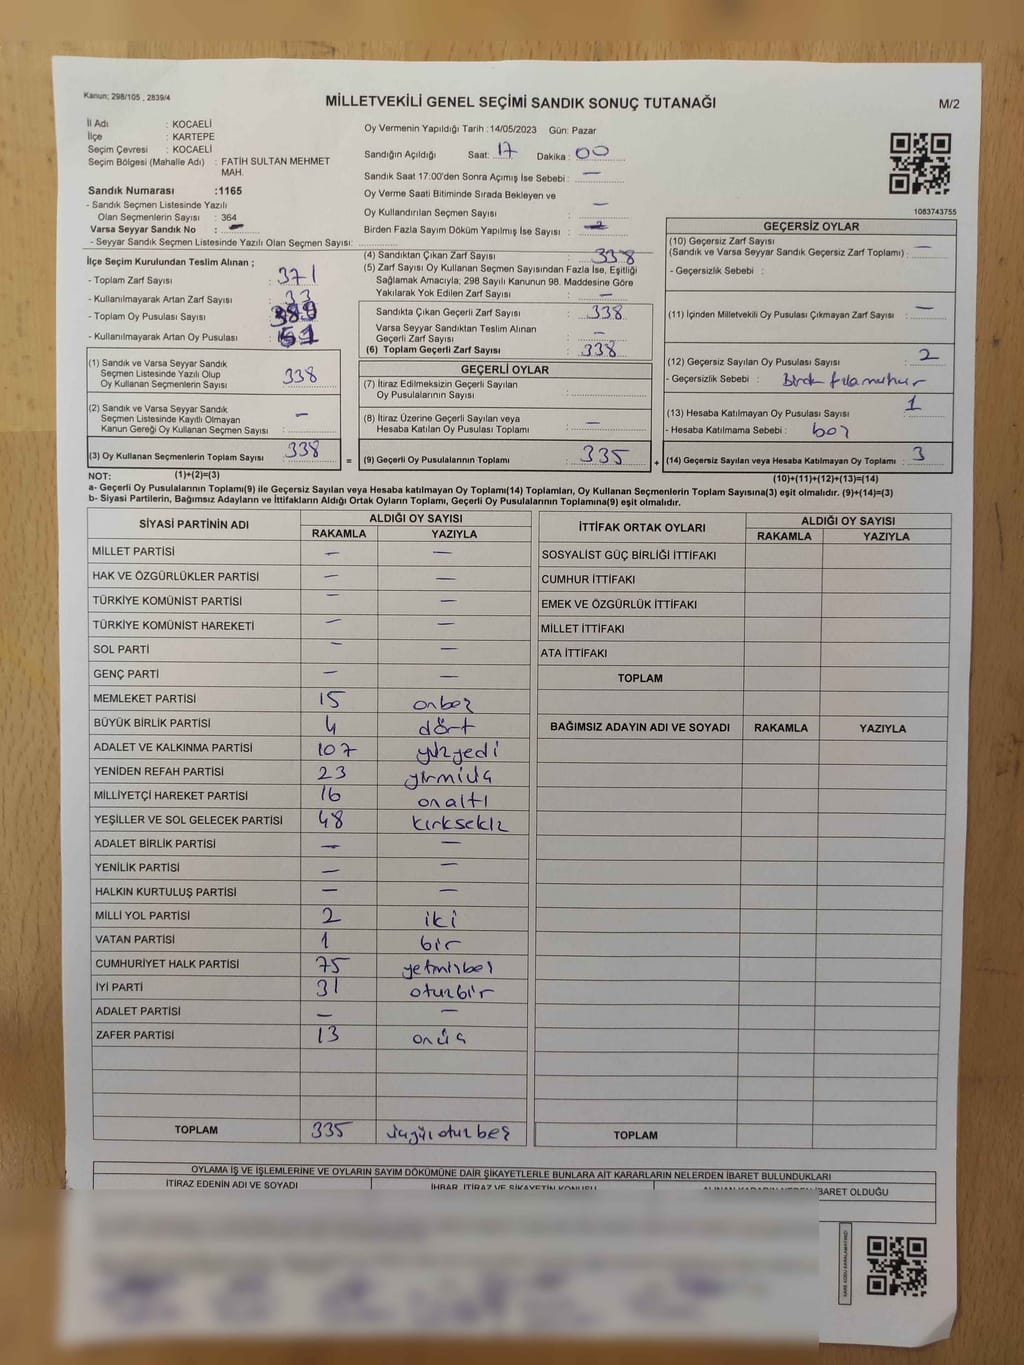 Kanun; 298/105 , 2839/4
MİLLETVEKİLİ GENEL SEÇİMİ SANDIK SONUÇ TUTANAĞI
M/2
İl Adı : KOCAELİ
İlçe : KARTEPE
Seçim Çevresi : KOCAELİ
Seçim Bölgesi (Mahalle Adı) : FATİH SULTAN MEHMET MAH.
Sandık Numarası :1165
- Sandık Seçmen Listesinde Yazılı
Olan Seçmenlerin Sayısı : 364
Varsa Seyyar Sandık No : —
- Seyyar Sandık Seçmen Listesinde Yazılı Olan Seçmen Sayısı:
Oy Vermenin Yapıldığı Tarih :14/05/2023 Gün: Pazar
Sandığın Açıldığı Saat: 17 Dakika : 00
Sandık Saat 17:00'den Sonra Açımış İse Sebebi : —
Oy Verme Saati Bitiminde Sırada Bekleyen ve
Oy Kullandırılan Seçmen Sayısı : —
Birden Fazla Sayım Döküm Yapılmış İse Sayısı :
1083743755
İlçe Seçim Kurulundan Teslim Alınan ;
- Toplam Zarf Sayısı : 371
- Kullanılmayarak Artan Zarf Sayısı : 33
- Toplam Oy Pusulası Sayısı :
- Kullanılmayarak Artan Oy Pusulası :
(1) Sandık ve Varsa Seyyar Sandık
Seçmen Listesinde Yazılı Olup
Oy Kullanan Seçmenlerin Sayısı : 338
(2) Sandık ve Varsa Seyyar Sandık
Seçmen Listesinde Kayıtlı Olmayan
Kanun Gereği Oy Kullanan Seçmen Sayısı : —
(3) Oy Kullanan Seçmenlerin Toplam Sayısı : 338
(4) Sandıktan Çıkan Zarf Sayısı : 338
(5) Zarf Sayısı Oy Kullanan Seçmen Sayısından Fazla İse, Eşitliği
Sağlamak Amacıyla; 298 Sayılı Kanunun 98. Maddesine Göre
Yakılarak Yok Edilen Zarf Sayısı : —
Sandıkta Çıkan Geçerli Zarf Sayısı : 338
Varsa Seyyar Sandıktan Teslim Alınan
Geçerli Zarf Sayısı : —
(6) Toplam Geçerli Zarf Sayısı : 338
GEÇERLİ OYLAR
(7) İtiraz Edilmeksizin Geçerli Sayılan
Oy Pusulalarının Sayısı :
(8) İtiraz Üzerine Geçerli Sayılan veya
Hesaba Katılan Oy Pusulası Toplamı : —
= (9) Geçerli Oy Pusulalarının Toplamı : 335
GEÇERSİZ OYLAR
(10) Geçersiz Zarf Sayısı
(Sandık ve Varsa Seyyar Sandık Geçersiz Zarf Toplamı) : —
- Geçersizlik Sebebi :
(11) İçinden Milletvekili Oy Pusulası Çıkmayan Zarf Sayısı : —
(12) Geçersiz Sayılan Oy Pusulası Sayısı : 2
- Geçersizlik Sebebi :
(13) Hesaba Katılmayan Oy Pusulası Sayısı : 1
- Hesaba Katılmama Sebebi : boş
+ (14) Geçersiz Sayılan veya Hesaba Katılmayan Oy Toplamı : 3
NOT: (1)+(2)=(3)
(10)+(11)+(12)+(13)=(14)
a- Geçerli Oy Pusulalarının Toplamı(9) ile Geçersiz Sayılan veya Hesaba katılmayan Oy Toplamı(14) Toplamları, Oy Kullanan Seçmenlerin Toplam Sayısına(3) eşit olmalıdır. (9)+(14)=(3)
b- Siyasi Partilerin, Bağımsız Adayların ve İttifakların Aldığı Ortak Oyların Toplamı, Geçerli Oy Pusulalarının Toplamına(9) eşit olmalıdır.
SİYASİ PARTİNİN ADI ALDIĞI OY SAYISI
RAKAMLA YAZIYLA
MİLLET PARTİSİ — —
HAK VE ÖZGÜRLÜKLER PARTİSİ — —
TÜRKİYE KOMÜNİST PARTİSİ — —
TÜRKİYE KOMÜNİST HAREKETİ — —
SOL PARTİ — —
GENÇ PARTİ — —
MEMLEKET PARTİSİ 15 onbeş
BÜYÜK BİRLİK PARTİSİ 4 dört
ADALET VE KALKINMA PARTİSİ 107 yüzyedi
YENİDEN REFAH PARTİSİ 23 yirmiüç
MİLLİYETÇİ HAREKET PARTİSİ 16 onaltı
YEŞİLLER VE SOL GELECEK PARTİSİ 48 kırksekiz
ADALET BİRLİK PARTİSİ — —
YENİLİK PARTİSİ — —
HALKIN KURTULUŞ PARTİSİ — —
MİLLİ YOL PARTİSİ 2 iki
VATAN PARTİSİ 1 bir
CUMHURİYET HALK PARTİSİ 75 yetmişbeş
İYİ PARTİ 31 otuzbir
ADALET PARTİSİ — —
ZAFER PARTİSİ 13 onüç
TOPLAM 335 üçyüzotuzbeş
İTTİFAK ORTAK OYLARI ALDIĞI OY SAYISI
RAKAMLA YAZIYLA
SOSYALİST GÜÇ BİRLİĞİ İTTİFAKI
CUMHUR İTTİFAKI
EMEK VE ÖZGÜRLÜK İTTİFAKI
MİLLET İTTİFAKI
ATA İTTİFAKI
TOPLAM
BAĞIMSIZ ADAYIN ADI VE SOYADI RAKAMLA YAZIYLA
TOPLAM
OYLAMA İŞ VE İŞLEMLERİNE VE OYLARIN SAYIM DÖKÜMÜNE DAİR ŞİKAYETLERLE BUNLARA AİT KARARLARIN NELERDEN İBARET BULUNDUKLARI
İTİRAZ EDENİN ADI VE SOYADI İHBAR, İTİRAZ VE ŞİKAYETİN KONUSU ALINAN KARARIN NEDEN İBARET OLDUĞU